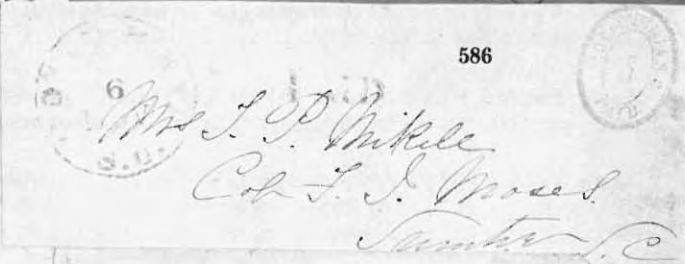 586
6
PAID
Mrs I. P. Mikell
Col F. J. Moses.
Sumter S. C